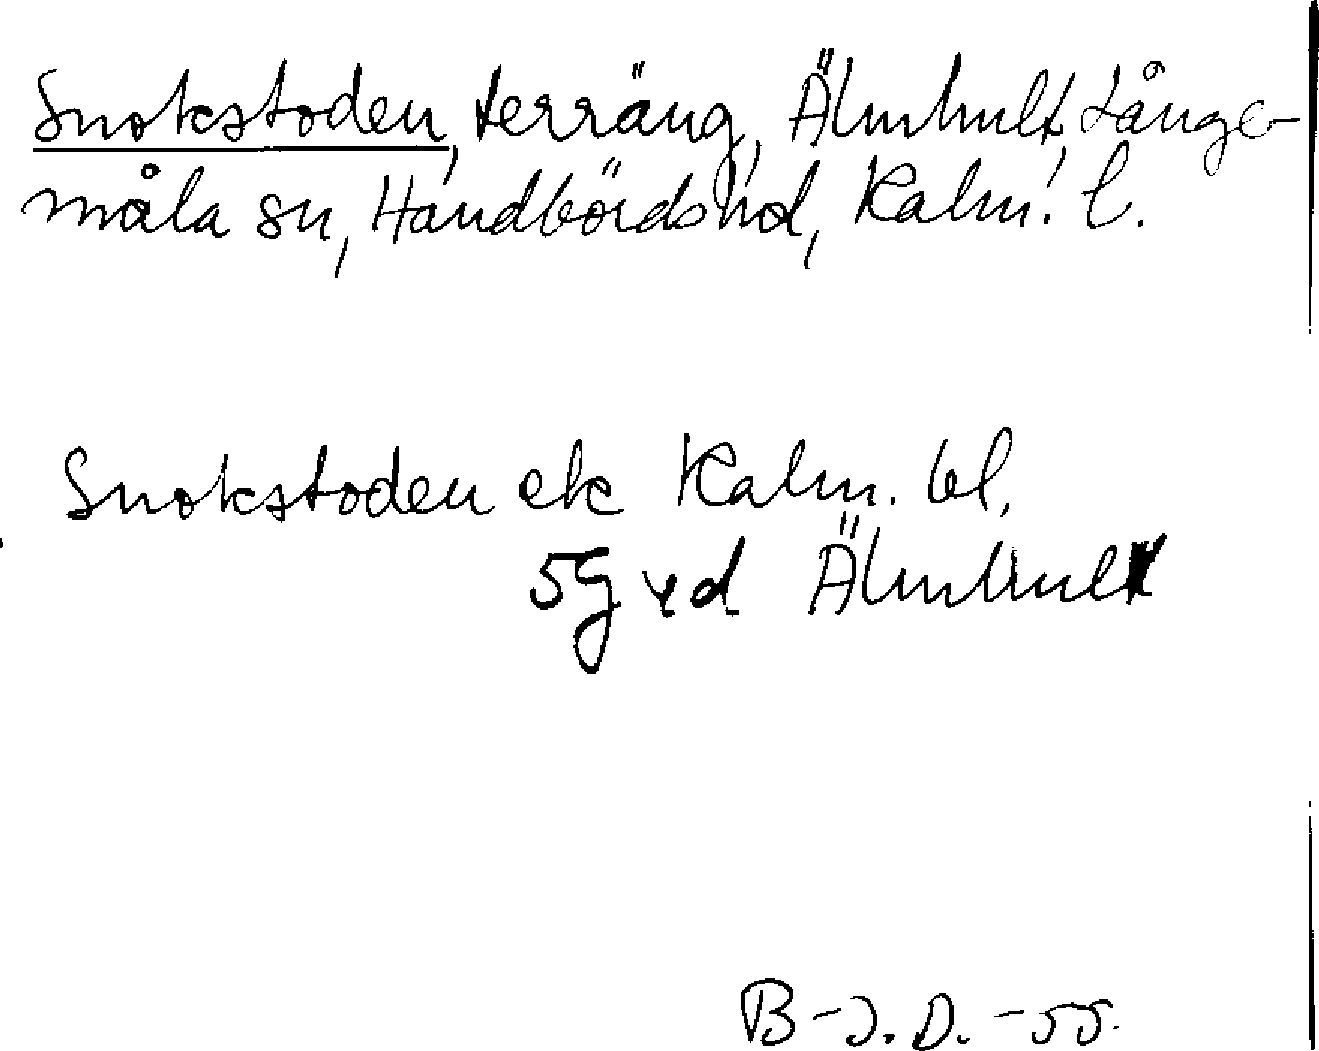 Snokstoden, terräng, Älmhult, Långe-
måla sn, Handbörds hd, Kalm. l.
Snokstoden ek Kalm. bl,
5G vd Älmhult
B-J. D. -55.